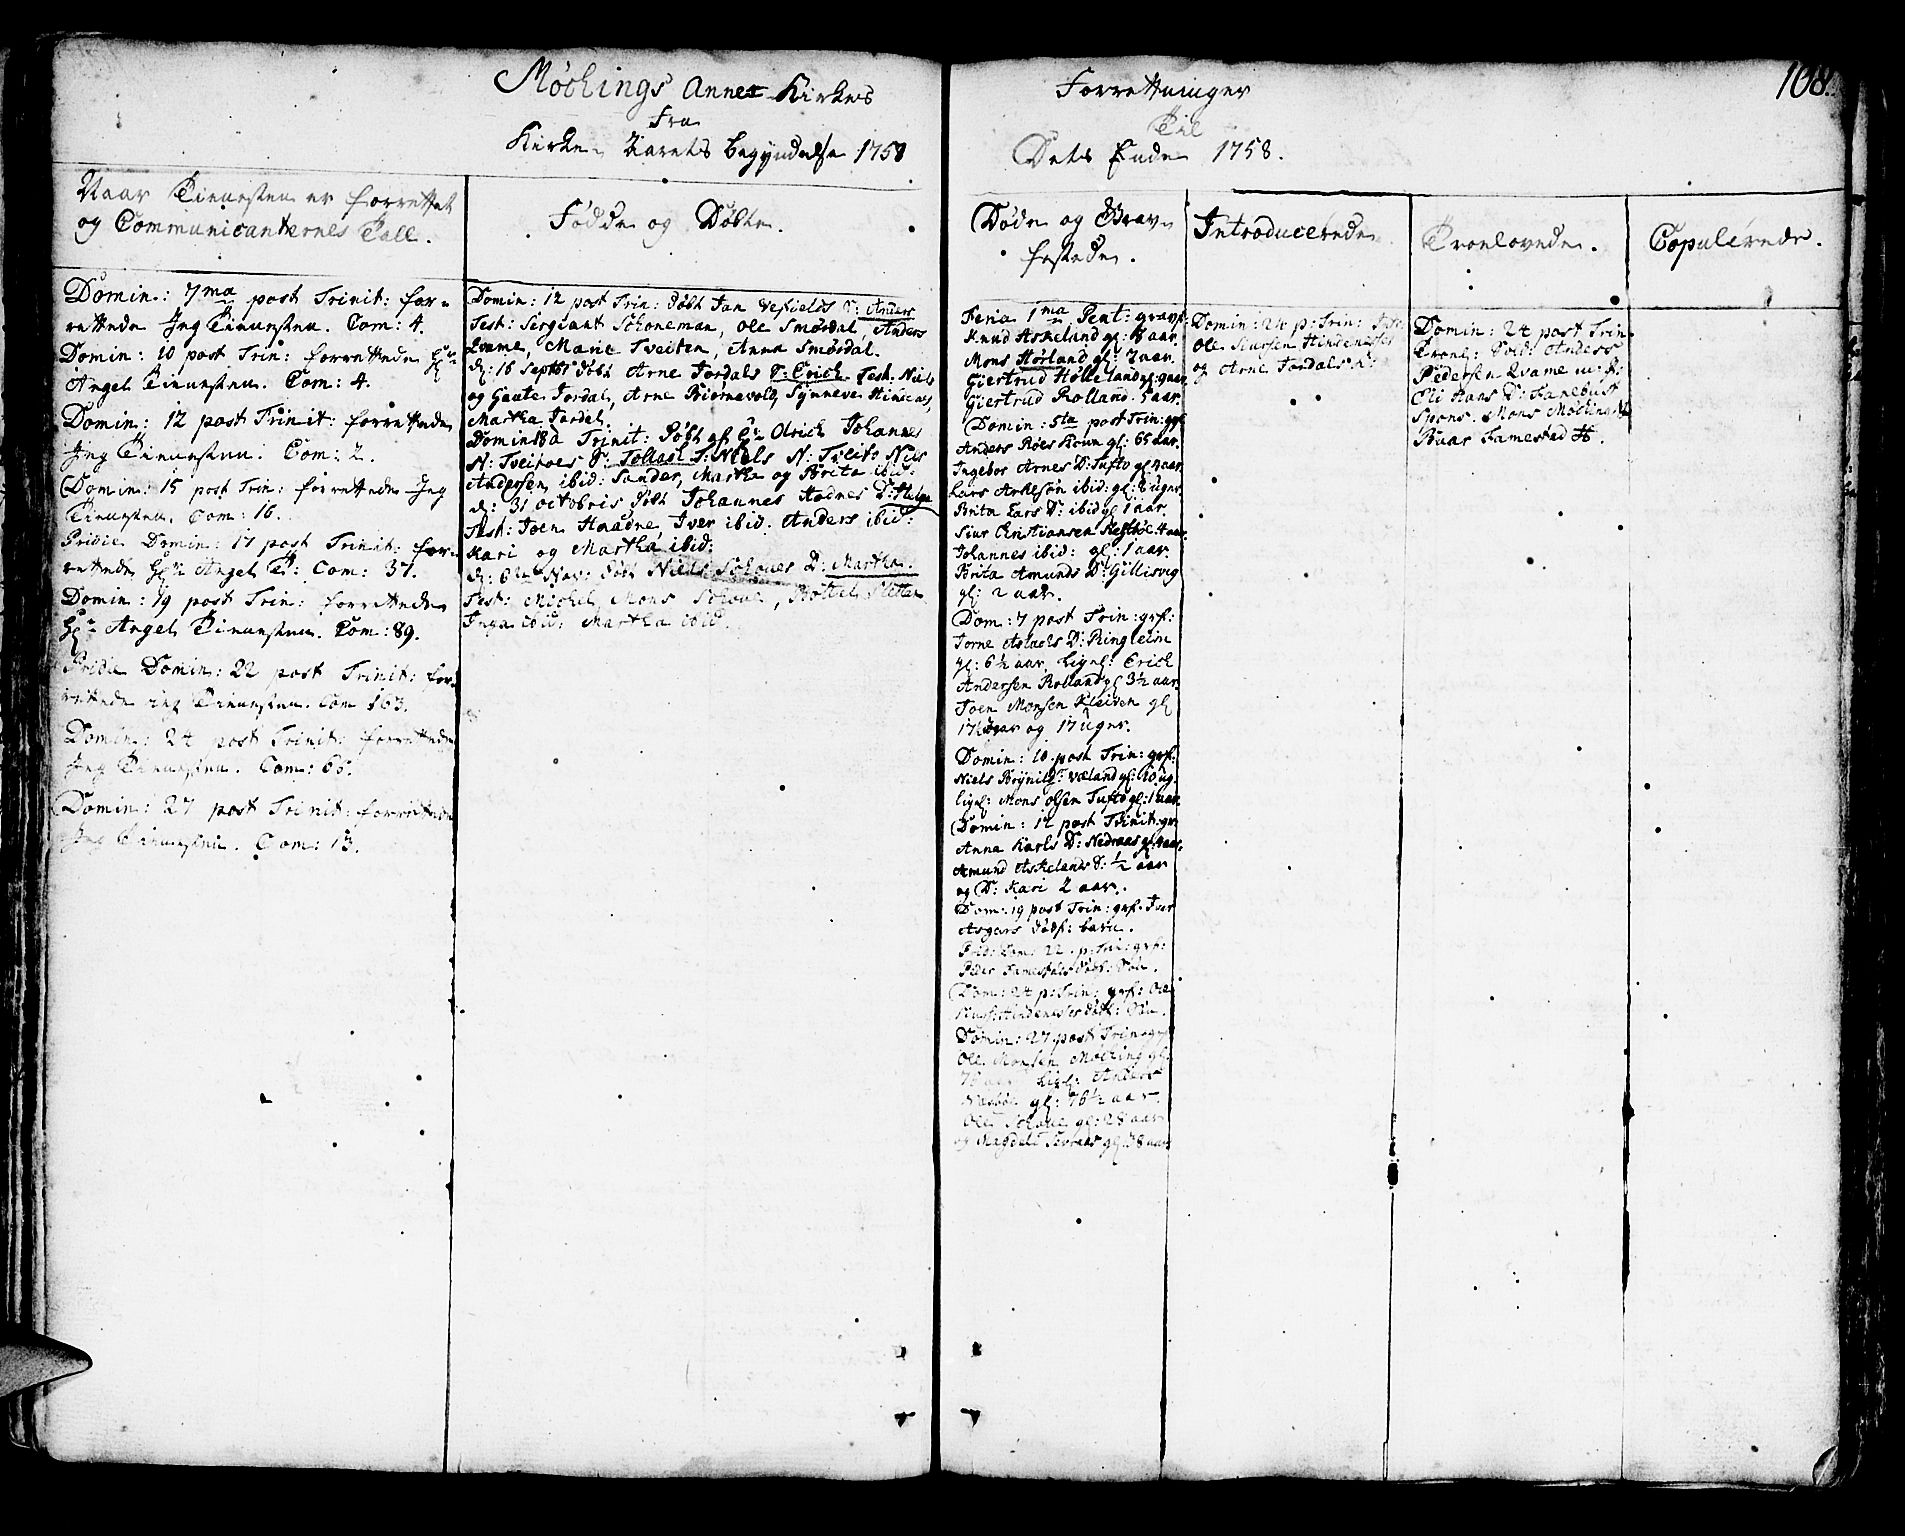 Møchings Annex Kirkes
Fra
Kirke Aarets Begyndelse 1758
Forrettninger
Til
Dets Ende 1758.
108.
Naar Tienesten er forrettet
og Communicanternes Tall.
Domin: 7ma post Trinit: for-
rettede Jeg Tienesten. Com: 4.
Domin: 10 post Trin: forrettede Hr
Angel Tienesten. Com: 4.
Domin: 12 post Trinit: forrettede
Jeg Tienesten. Com: 2.
Domin: 15 post Trin: forrettede Jeg
Tienesten. Com: 16.
Pridie Domin: 17 post Trinit: for-
rettede Hr Angel T: Com: 37.
Domin: 19 post Trin: forrettede
Hr Angel Tienesten. Com: 89.
Pridie Domin: 22 post Trinit: for-
rettede jeg Tienesten. Com 163.
Domin: 24 post Trinit: forrettede
Jeg Tienesten. Com: 66.
Domin: 27 post Trinit: forrettede
Jeg Tienesten. Com: 13.
Fødde og Døbte.
Domin: 12 post Trin: døbt Jan S: Anders
Test: Sergiant Schoneman, Ole Smørdal, Anders
Marie Tveiten, Anna Smørdal.
d: 16 Septbr døbt Arne Jordals S: Erich. Test: Niels
og Gaute Jordal, Arne Biørnevold, Synneve
Martha Jordal.
Domin 18 Trinit: døbt af Hr Olrich Johannes
N: Tveitoes S: Test: Niels
Andersen ibid: Sander, Martha og Brita ibid:
d: 31 octobris døbt Johannes Hadnes D: Helga
Test: Joen Haadne, Iver ibid. Anders ibid:
Kari og Martha ibid:
d: 6te Nov: døbt Niels Schoues D: Martha.
Test: Michel, Mons Schoue, Botlel Sletten
Inga ibid: Martha ibid.
Døde og Grav-
festede.
Feria 1ma Pent: gravf:
Knud Askeland gl: aar.
Mons Hørland gl: 7 aar.
Giertrud Hølleland gl: aar
Giertrud Rolland: 5 aar.
Domin: 5ta post Trin: grf
Anders Røes Kone gl: 65 aar.
Ingebor Arnes D: Tufto gl 4 aar
Lars Askelsøn ibid: gl: 8 uger.
Brita Lars D: ibid gl 1 aar.
Siur Christiansen 4 aar
Johannes ibid: gl: 1 aar.
Brita Amunds D: Gillisvig
gl: 2 aar.
Dom: 7 post Trin: grf:
Torne Aslachs D: Ringleim
gl: 6½ aar, Ligel: Erich
Andersen Rolland gl 3½ aar.
Joen Monsen Kleiven gl
aar og 17 uger.
Domin: 10 post Trin: grf:
Niels Væland gl: 10 ug.
ligel: Mons Olsen Tufto gl: 1 aar.
Domin: 12 post Trinit: gr:
Anna Karls D: Nedraas gl: aar.
Amund Askelands S: ½ aar
og D: Kari 2 aar.
Dom: 19 post Trin: grf. Iver
Asgars dødf: barn.
Prid: Dom: 22. p: Tri: grf:
Peder Famestads S:
Dom: 24 p: Trin: grf: Ole
Hindenesses
Domin: 27 post Trin: grf
Ole Monsen Møching gl:
aar Ligel: Anders
gl: 76½ aar.
Ole Schoue gl: 28 aar
og Magdeli gl: aar
Introducerede
Domin: 24 p: Trin:
Ole Siursen Hindenesses
og Arne Jordals K:
Troelovede.
Domin: 24 post Trin
Troel: Sold: Anders
Pedersen Qvame m: P:
Eli Hans D: Tanebust
Spons. Mons Møching
Roar Famestad
Copulerede.